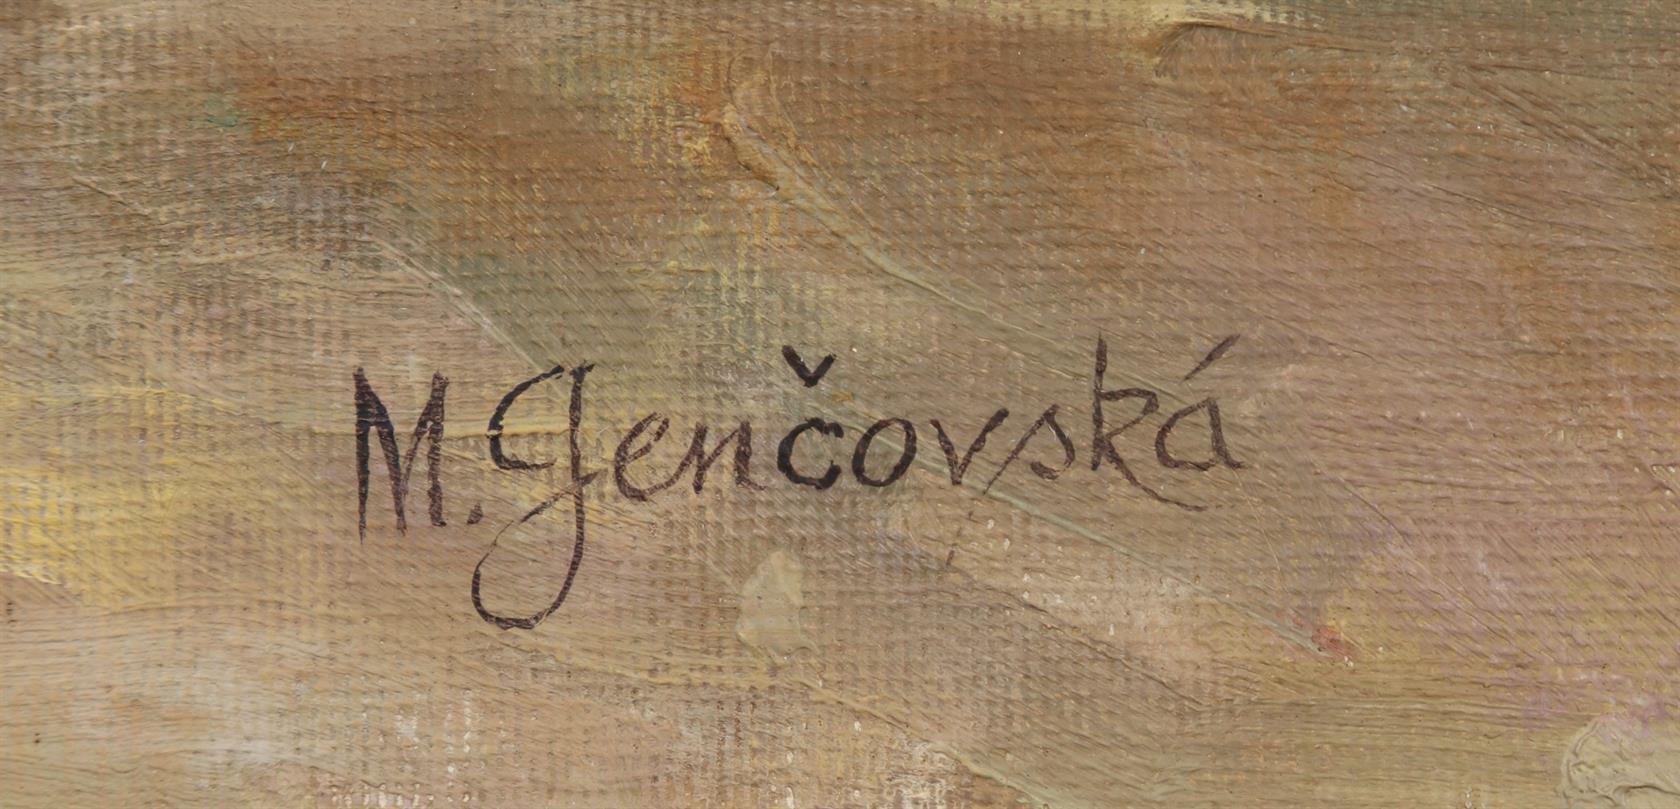 M. Jenčovská